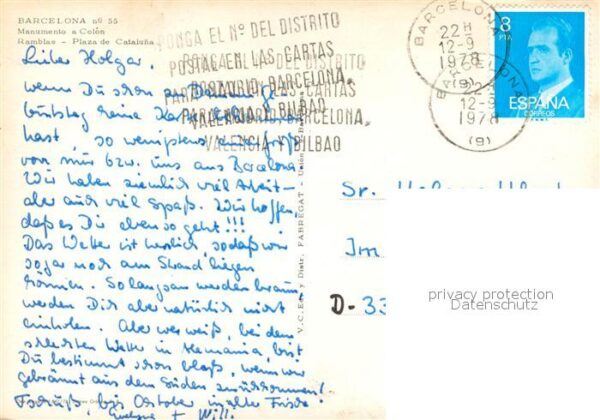 BARCELONA nº 55
Monumento a Colón
Ramblas - Plaza de Cataluña
PONGA EL Nº DEL DISTRITO
POSTAL EN LAS CARTAS
PARA
BARCELONA,
VALENCIA Y BILBAO
BARCELONA
22H
12-9
1978
(9)
BARCELONA
12-9
1978
(9)
8
PTA
ESPAÑA
CORREOS
Lieber Holger.
wenn Du schon zu Deinem Ge-
burtstag keine Karte
hast, so wenigstens
von mir bzw. uns aus Barcelona
Wir haben ziemlich viel Arbeit -
aber auch viel Spaß. Wir hoffen,
daß es Dir ebenso geht!!!
Das Wetter ist herrlich, sodaß wir
sogar noch am Strand liegen
können. So langsam werden braun,
werden Dich aber natürlich nicht
einholen. Aber wer weiß, bei dem
schlechten Wetter in Alemania, bist
Du bestimmt schon blaß, wenn wir
gebräunt aus dem Süden zurückkommen!
Tschüß, bis Oktober in alter Frische
+ Willi
V. C. Ed. y Distr. FABREGAT - Unión
Sr.
Im
D-33
privacy protection
Datenschutz